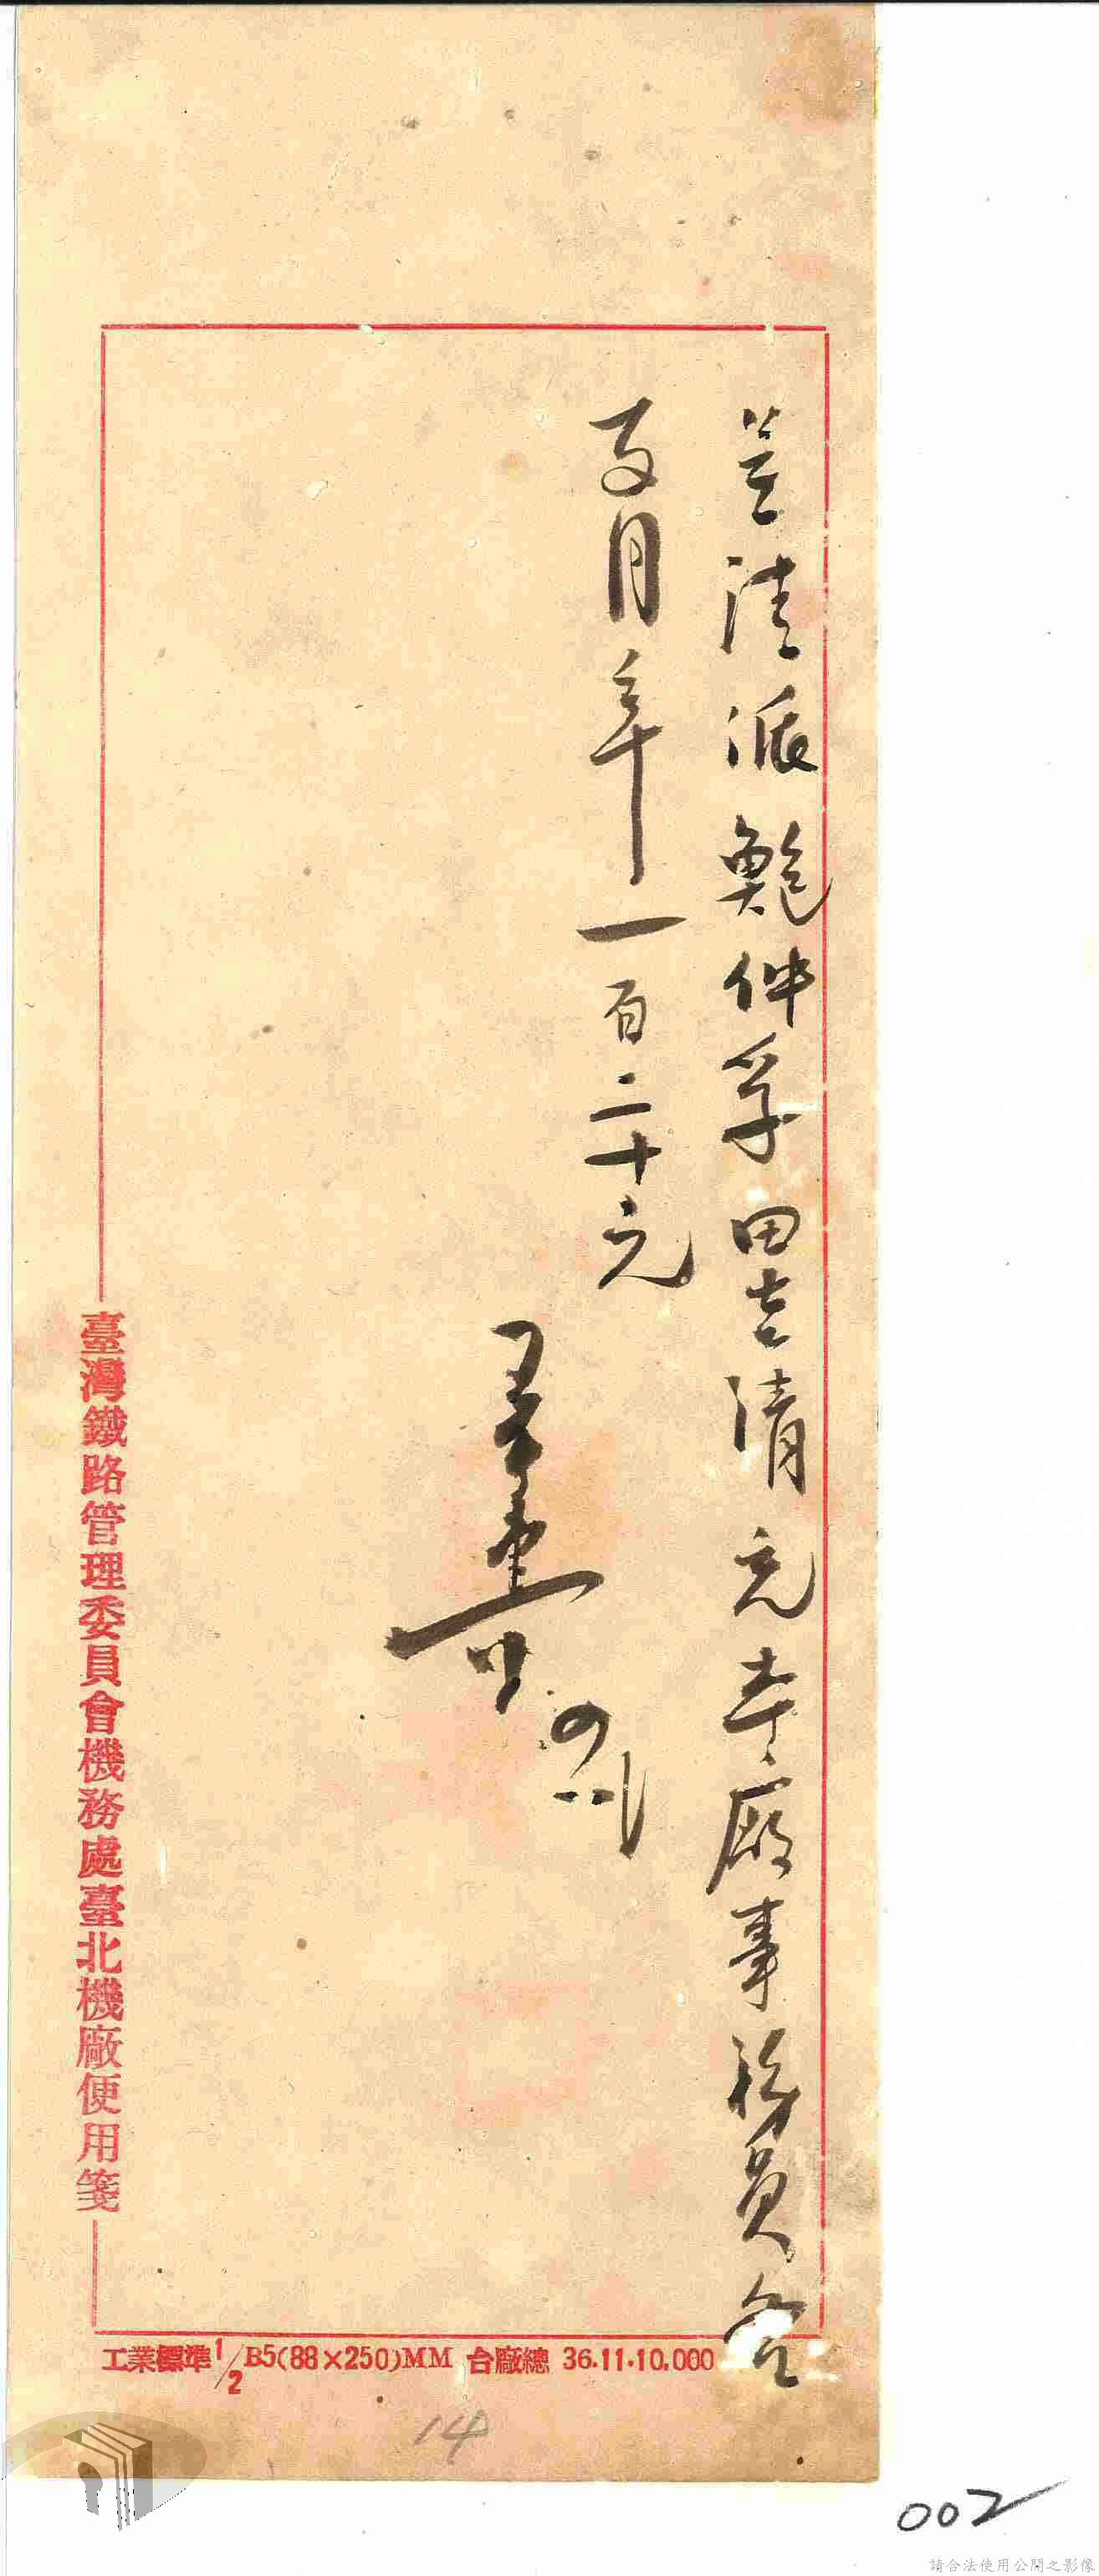 簽請派鮑仲孚田吉清充本廠事務員各
支月薪一百二十元
四八
臺灣鐵路管理委員會機務處臺北機廠便用箋
工業標準1/2B5(88×250)MM 台廠總 36.11.10.000
14
002
請合法使用公開之影像